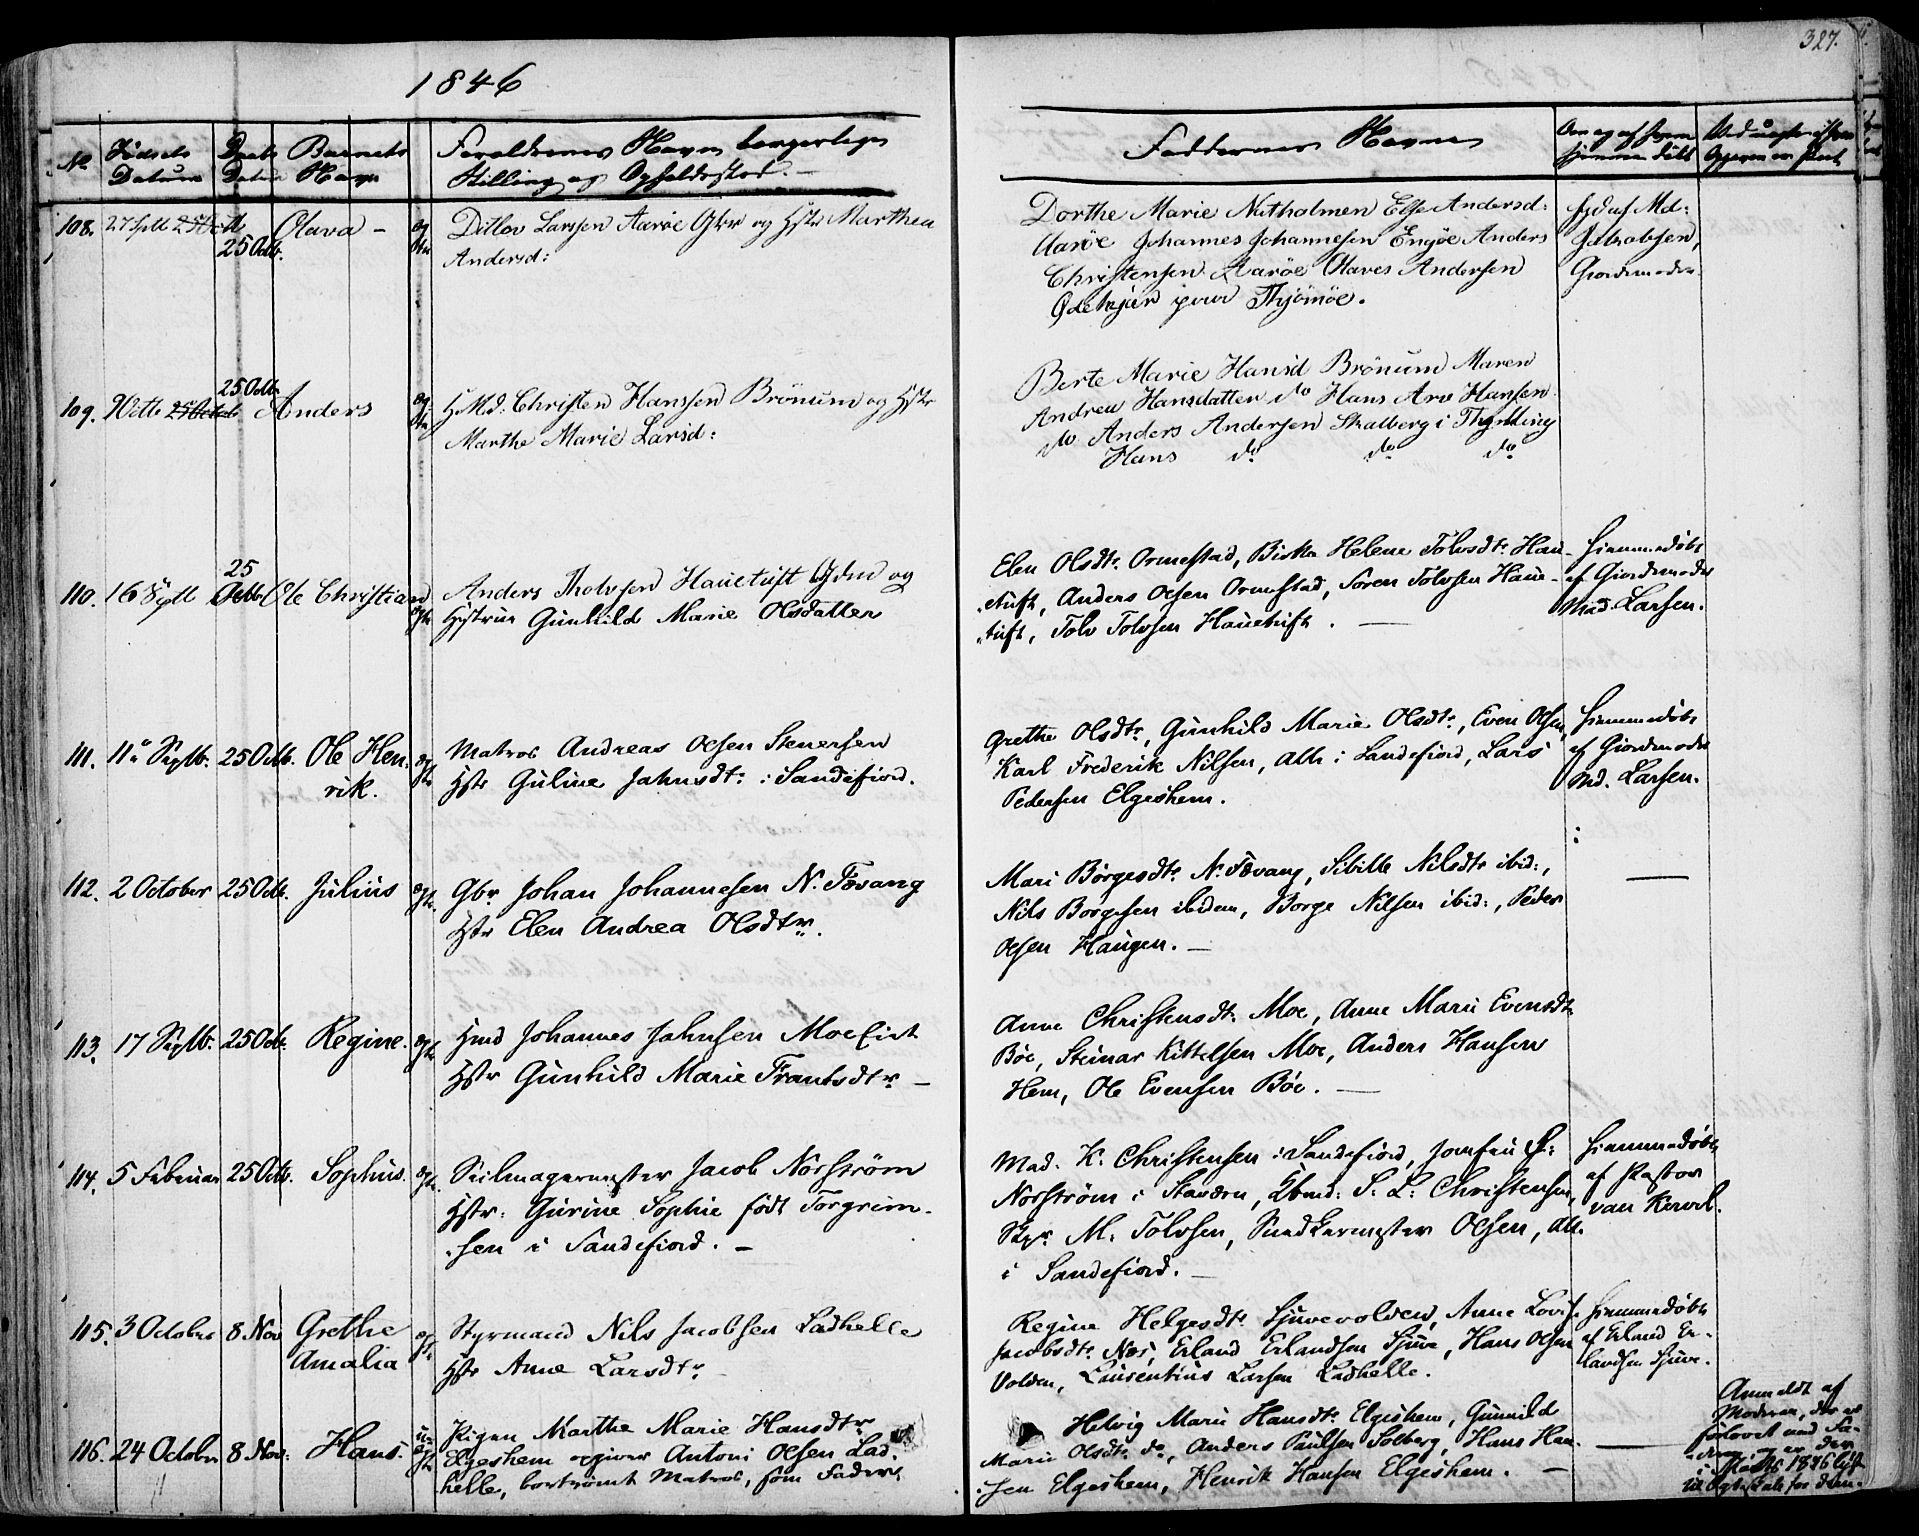 1846
327.
No
Fødsels Datum
Daabs Datum
Barnets Navn
Forældrenes Navn, borgerlige
Stilling og Opholdssted.
Faddernes Navne
Om og af hvem
hjemmedøbt
108. 27 Septb 25 Octb. Olava –
Ditlov Larsen Aarøe Gbr og Hstr Marthea
Andersd:
Dorthe Marie Natholmen Else Andersd:
Aarøe Johannes Johannesen Engøe Anders
Christensen Aarøe Olaves Andersen
paa Thjømøe.
Md:
Jakobsen,
Giordemoder
109. 25 Octb. Anders
H.Md. Christen Hanssen Brönum og Hstr
Marthe Marie Larsd:
Berte Marie Hansd Brönum Maren
Andrea Hansdatter do Hans Arv Hansen
do Anders Andersen Skalberg i Thjølling
Hans do do do
110. 16 Septb 25 Octb. Ole Christian
Anders Tholvsen Hauetuft Gdm og
Hustrue Gunhild Marie Olsdatter
Elen Olsdtr. Ormestad, Helene Tolvsdtr. Haue-
tuft, Anders Olsen Ormestad, Søren Tolvsen Haue-
tuft, Tolv Tolvsen Hauetuft. —
Hiemmedøbt
af Giordemoder
Mad. Larsen.
111. 11te Septb. 25 Octb. Ole Hen-
rik.
Matros Andreas Olsen Stenersen
Hstr Guline Jahnsdtr. i Sandefiord.
Grethe Olsdtr., Gunhild Marie Olsdtr., Even Olsen,
Karl Frederik Nilsen, alle i Sandefiord, Lars
Pedersen Elgeshem.
Hiemmedøbt
af Giordemoder
Md. Larsen.
112. 2 October 25 Octb. Julius
Gbr. Johan Johannesen N. Fevang
Hstr Elen Andrea Olsdtr.
Mari Børgesdtr. N. Fevang, Sibille Nilsdtr ibid:,
Nils Børgesen ibidem, Børge Nilsen ibid:, Peder
Olsen Haugen. —
113. 17 Septb. 25 Octb. Regine.
Hmd Johannes Jahnsen Moe
Hstr Gunhild Marie Frantsdtr. —
Anne Christensdtr. Moe, Anne Marie Evensdtr
Bøe, Steinar Kittelsen Moe, Anders Hansen
Hem, Ole Evensen Bøe. —
114. 5 Februar 25 Octb. Sophus.
Seilmagermester Jacob Norstrøm
Hstr: Gurine Sophie født Torgrim-
sen i Sandefiord. —
Mad. K. Christensen i Sandefiord, Jomfru
Norstrøm i Stavern, S. L. Christensen,
M. Tolvsen, Olsen, alle
i Sandefiord. —
Hiemmedøbt
af Pastor
van Kervel.
115. 3 October 8 Nov Grethe
Amalia
Styrmand Nils Jacobsen Ladhelle
Hstr Anne Larsdtr.
Regine Helgesdtr. Sjuevolden, Anne Lovise
Jacobsdtr. Nes, Erland Erlandsen Sjue, Hans Olsen
Volden, Laurentius Larsen Ladhelle.
Hiemmedøbt
af Erland Er-
landsen Sjue.
116. 24 October 8 Nov: Hans.
Pigen Marthe Marie Hansdtr.
Elgeshem opgiver Antoni Olsen Lad-
helle, bortrømt Matros, som Fader.
Helvig Marie Hansdtr. Elgeshem, Gunnild
Marie Olsdtr. do, Anders Paulsen Solberg, Hans Han-
sen Elgeshem, Henrik Hansen Elgeshem. —
Anmeldt af
Moderen, der er
forlovet med Fa-
deren, og er der
1846 lyst
til Ægteskab for dem.